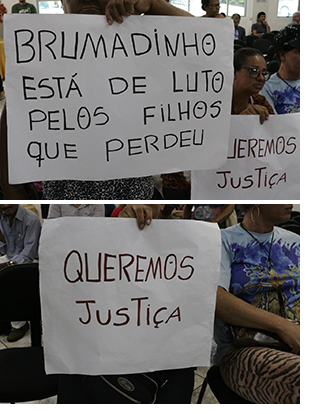 BRUMADINHO
ESTÁ DE LUTO
PELOS FILHOS
QUE PERDEU
QUEREMOS
JUSTIÇA
QUEREMOS
JUSTIÇA